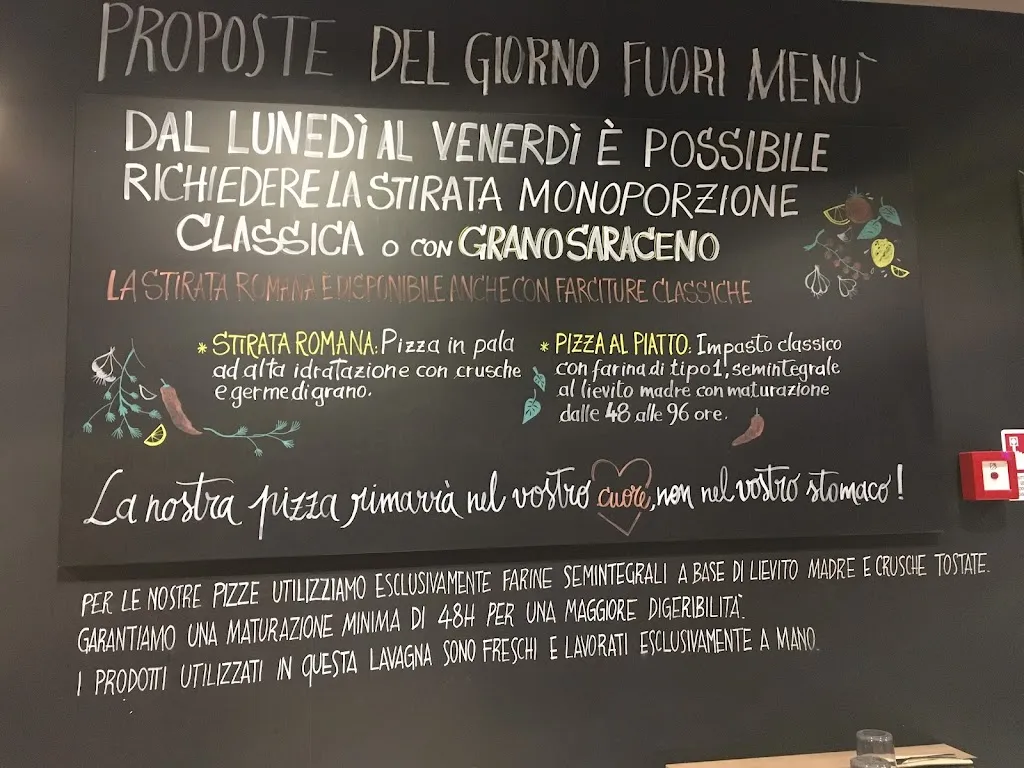 PROPOSTE DEL GIORNO FUORI MENÙ
DAL LUNEDÌ AL VENERDÌ È POSSIBILE
RICHIEDERE LA STIRATA MONOPORZIONE
CLASSICA O CON GRANO SARACENO
LA STIRATA ROMANA È DISPONIBILE ANCHE CON FARCITURE CLASSICHE
* STIRATA ROMANA: Pizza in pala
ad alta idratazione con crusche
e germe di grano.
* PIZZA AL PIATTO: Impasto classico
con farina di tipo 1, semintegrale
al lievito madre con maturazione
dalle 48 alle 96 ore.
La nostra pizza rimarrà nel vostro cuore, non nel vostro stomaco!
PER LE NOSTRE PIZZE UTILIZZIAMO ESCLUSIVAMENTE FARINE SEMINTEGRALI A BASE DI LIEVITO MADRE E CRUSCHE TOSTATE.
GARANTIAMO UNA MATURAZIONE MINIMA DI 48H PER UNA MAGGIORE DIGERIBILITÀ.
I PRODOTTI UTILIZZATI IN QUESTA LAVAGNA SONO FRESCHI E LAVORATI ESCLUSIVAMENTE A MANO.